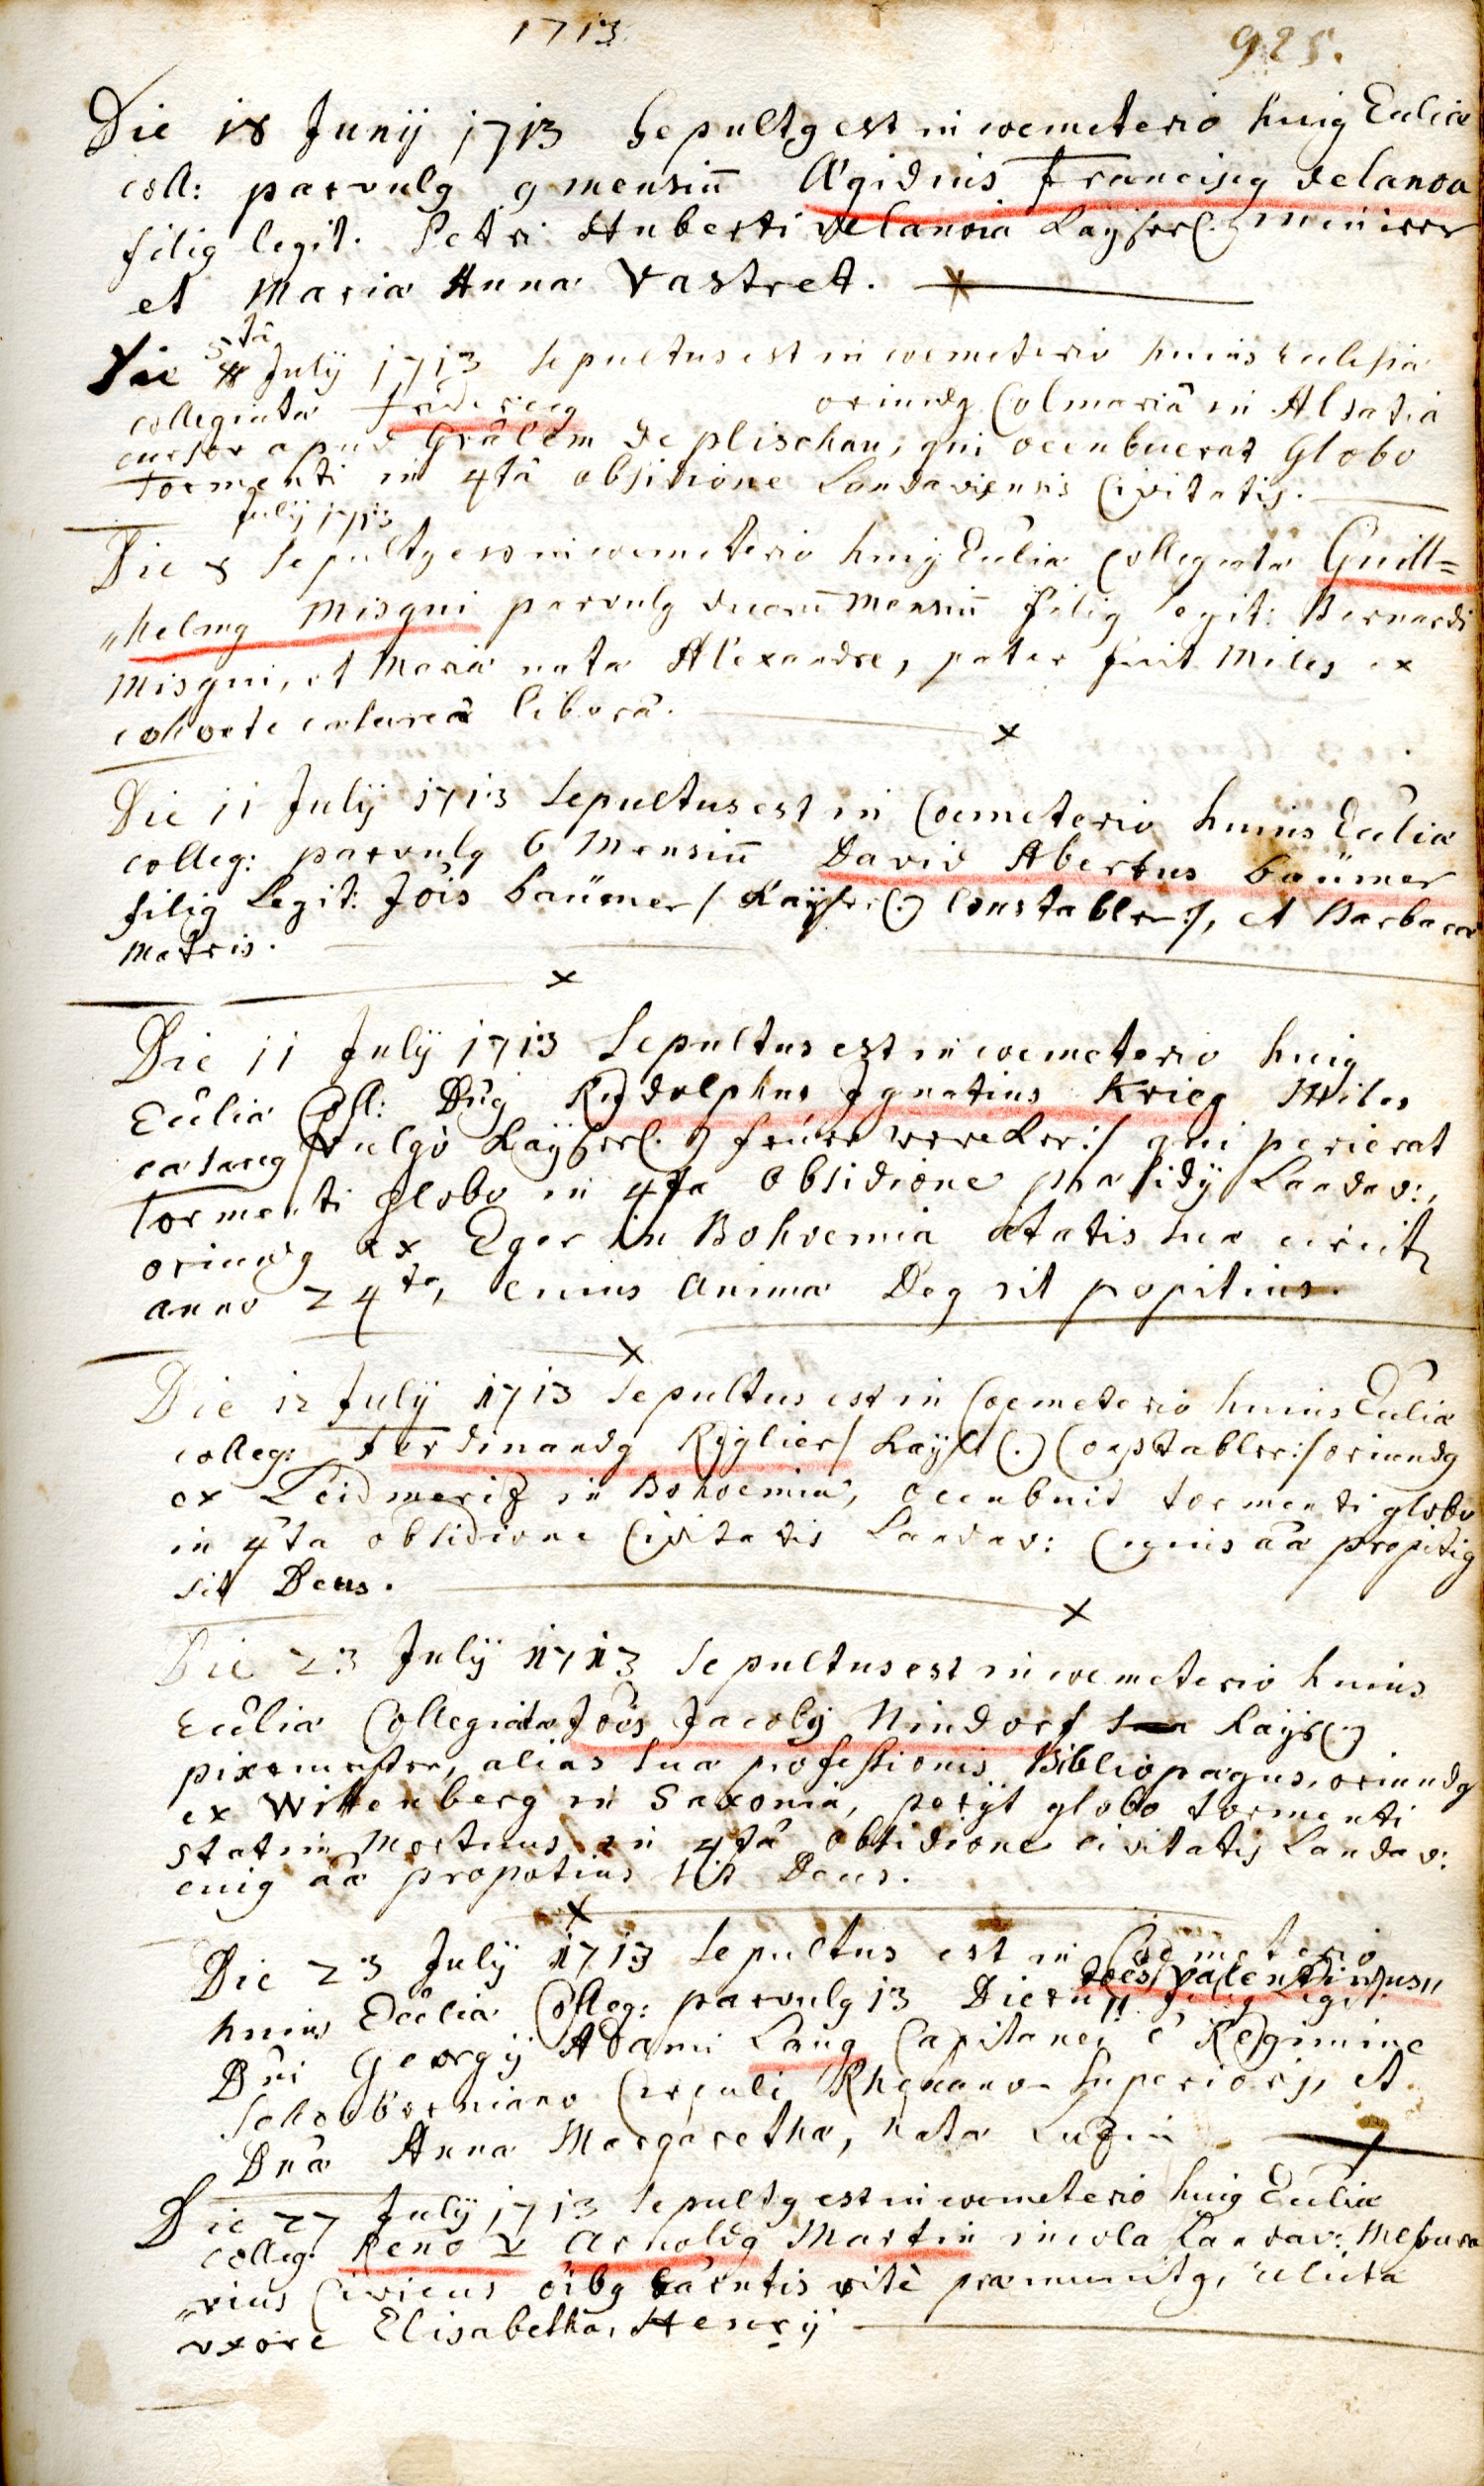 1713.
925.
Die 18 Junij 1713 Sepultg est in coemeterio huig Eccliæ
coll: parvulg 9 mensiu Ægidius Franciscg delanoa
filig legit. Petri Huberti delanoia Kayserl. minierer
et Maria Anna Vastret.
Die 5ta July 1713 Sepultus est in coemeterio huius Ecclesiæ
collegiatæ Fridericg oriundg Colmariâ in Alsatiâ
cursor apud Grâlem de plischau, qui occubuerat Globo
Tormenti in 4tâ obsidione Landaviensis Civitatis.
July 1713
Die 8 Sepultg est in coemeterio huig Eccliæ Collegiatæ Guill=
„helmg Misgui parvulg duoru mensiu filig legit: Bernardi
Misgui, et Maria nata Alexandre, pater fuit Miles ex
cohorte cæsareâ liberâ.
Die 11 July 1713 Sepultus est in Coemeterio huius Eccliæ
colleg: parvulg 6 Mensiu David Abertus baümer
filig Legit: Jois baümer / Kayserl. Constabler:/, et Barbaræ
Matris.
Die 11 July 1713 Sepultus est in coemeterio huig
Eccliæ Coll: Dng Rudolphus Ignatius Krieg Miles
cæsareg / vulgò Kayserl. feüer wercker:/ qui perierat
Tormenti globo in 4ta obsidione præsidij Landav:,
oriundg ex Eger in Bohoemia ætatis suæ circit
anno 24to, cuius animæ Deg sit propitius.
Die 12 July 1713 Sepultus est in Coemeterio huius Eccliæ
colleg: Ferdinandg Ryglier / Kayserl. Constabler:/ oriundg
ex Leidmeriz in Bohoemia, occubuit tormenti globo
in 4ta obsidione Civitatis Landav: Cuguis aæ propitig
sit Deus.
Die 23 July 1713 Sepultus est in coemeterio huius
Eccliæ Collegiatæ Joês Jacobg Nindorf Kayserl.
pixemester, alias suæ professionis Bibliopagus, oriundg
ex Wittenberg in Saxonia, perijt globo tormenti
statim mortuus in 4tâ obsidione civitatis Landav:
cuig aæ propotius sit Deus.
Die 23 July 1713 Sepultus est in Coemeterio
Joês Valentinus„
huius Eccliæ Colleg: parvulg 13 Dieru„ filig legit:
Dni Georgij Adami Lang Capitanei è Regimine
Schonborniano Circuli Rhenano-Superioris, et
Dnæ Anna Margaretha, nata Luzin
Die 27 July 1713 Sepultg est in coemeterio huig Eccliæ
colleg: Reno V Arnoldg Martin incola Landav: Mesura
„rius Civicus oibg sacrntis ritè præmunitg, relicta
uxore Elisabetha, Henrij